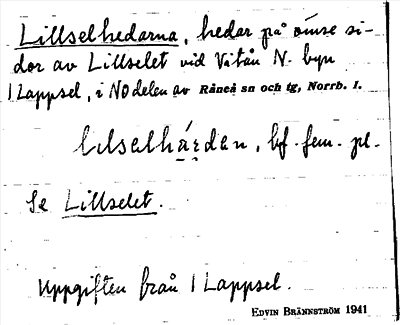 Lillselhedarna, hedar på ömse si-
dor av Lillselet vid Vitån N. byn
1 Lappsel, i NO delen av Råneå sn och tg, Norrb. l.
bf. fem. pl.
Se Lillselet.
Uppgiften från 1 Lappsel.
EDVIN BRÄNNSTRÖM 1941